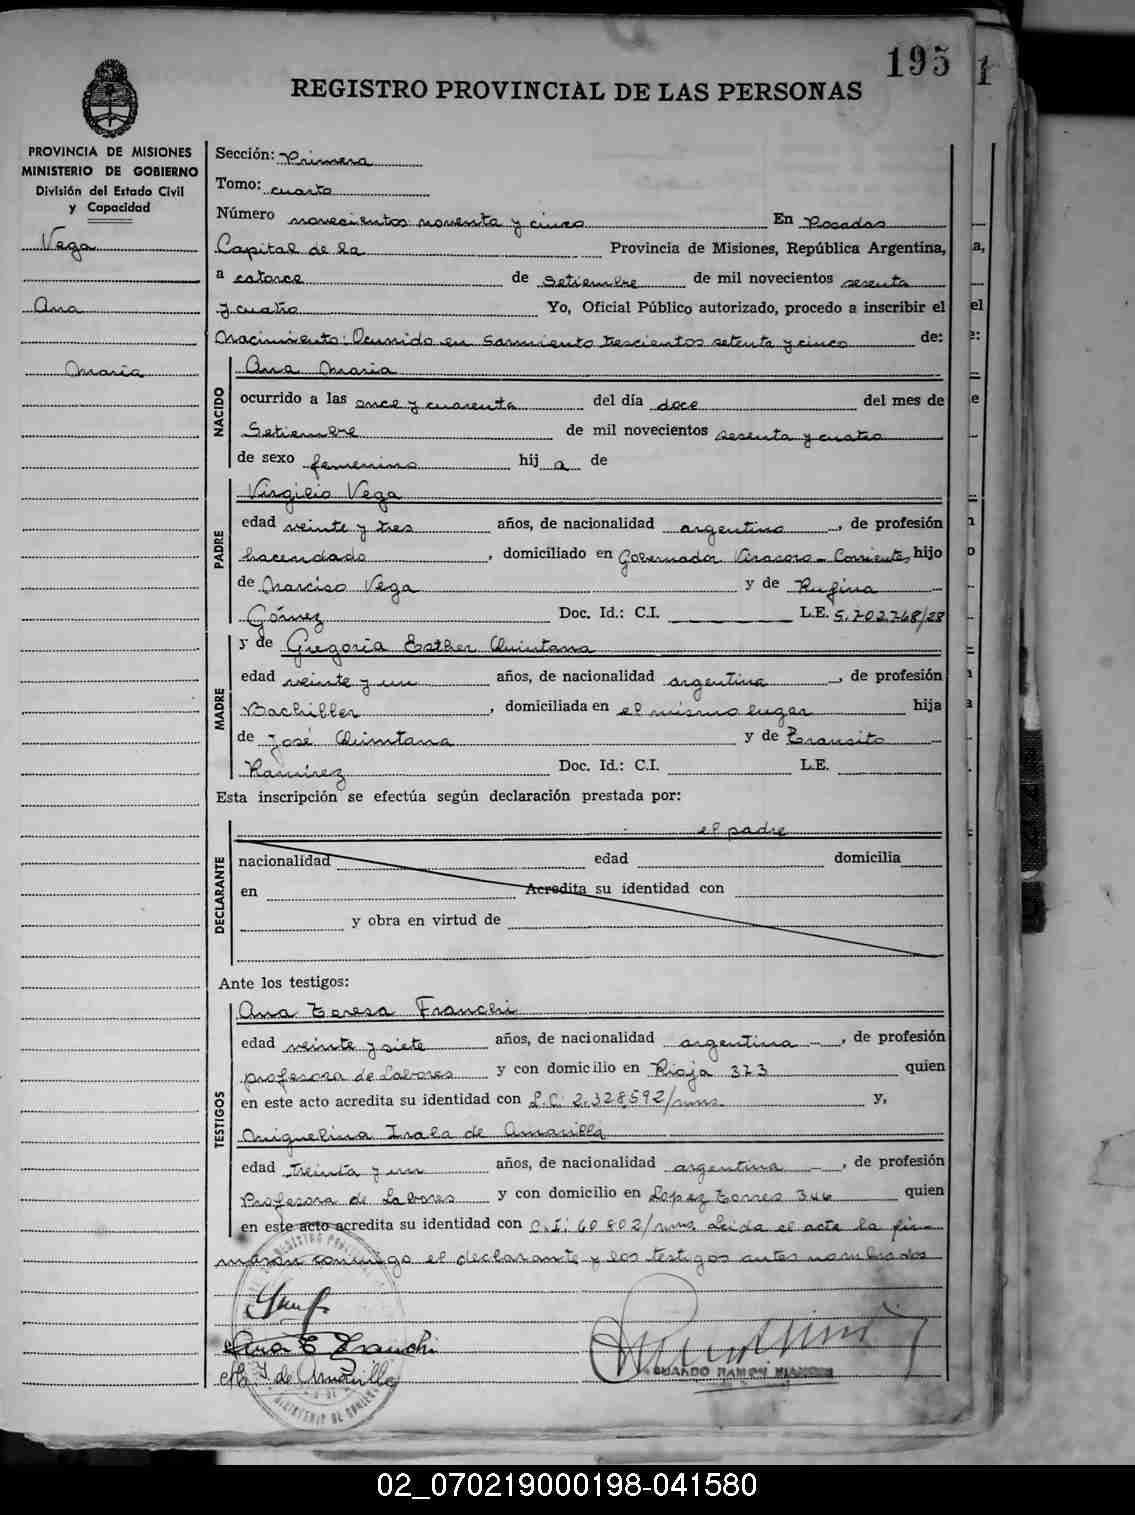 195
1
REGISTRO PROVINCIAL DE LAS PERSONAS
PROVINCIA DE MISIONES
MINISTERIO DE GOBIERNO
División del Estado Civil
y Capacidad
Vega
Ana
Maria
Sección: Primera
Tomo: cuarto
Número novecientos noventa y cinco En Posadas
Capital de la Provincia de Misiones, República Argentina,
a catorce de Setiembre de mil novecientos sesenta
y cuatro Yo, Oficial Público autorizado, procedo a inscribir el
Nacimiento: Ocurrido en Sarmiento trescientos setenta y cinco de:
NACIDO
Ana Maria
ocurrido a las once y cuarenta del día doce del mes de
Setiembre de mil novecientos sesenta y cuatro
de sexo femenino hij a de
PADRE
Virgilio Vega
edad veinte y tres años, de nacionalidad argentino, de profesión
hacendado, domiciliado en Gobernador Virasoro - Corrientes, hijo
de Narciso Vega y de Rufina
Gómez Doc. Id.: C.I. L.E. 5.702.768/28
MADRE
y de Gregoria Esther Quintana
edad veinte y un años, de nacionalidad argentina, de profesión
Bachiller, domiciliada en el mismo lugar hija
de José Quintana y de Transito
Ramirez Doc. Id.: C.I. L.E.
Esta inscripción se efectúa según declaración prestada por:
DECLARANTE
el padre
nacionalidad edad domicilia
en Acredita su identidad con
y obra en virtud de
Ante los testigos:
TESTIGOS
Ana Teresa Franchi
edad veinte y siete años, de nacionalidad argentina, de profesión
profesora de Labores y con domicilio en Rioja 373 quien
en este acto acredita su identidad con L.C. 2.328.592/mns. y,
Miguelina Irala de Amarilla
edad treinta y un años, de nacionalidad argentina, de profesión
Profesora de Labores y con domicilio en Lopez Torres 346 quien
en este acto acredita su identidad con C.I. 60802/mns. Leida el acta la fir-
maron conmigo el declarante y los testigos antes nombrados
Ana T Franchi
M. I. de Amarilla
02_070219000198-041580